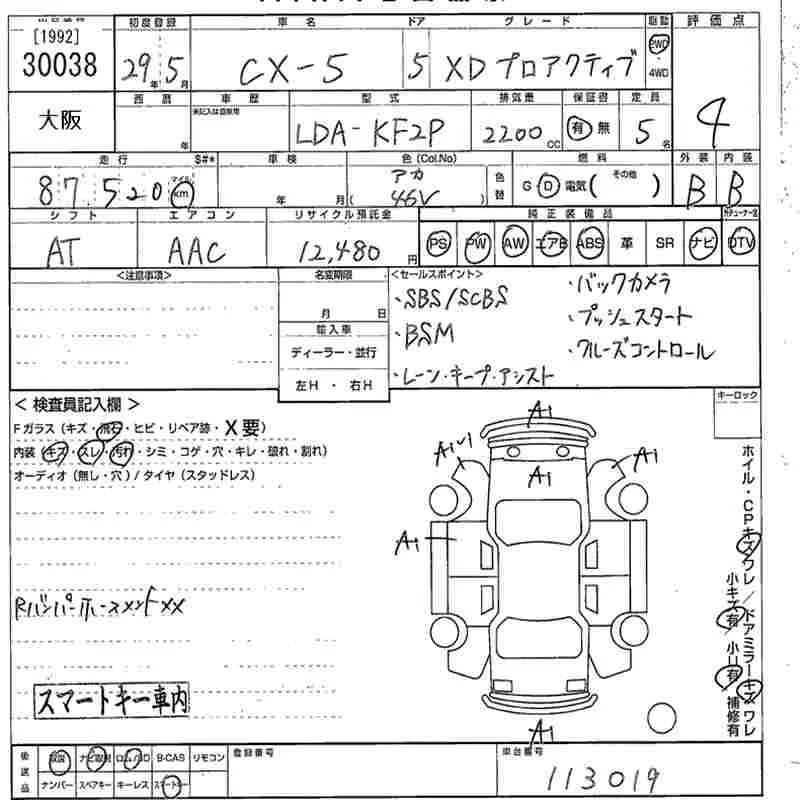 出品番号 初度登録 車名 ドア グレード 駆動 評価点
[1992]
30038 29年 5月 CX-5 5 XD プロアクティブ 2WD・4WD 4
大阪 西暦 年 車歴 未記入は自家用 型式 LDA-KF2P 排気量 2200CC 保証書 有 無 定員 5名
走行 S#* 車検 色(Col.No) 燃料 外装 内装
87520 マイル km 年 月 アカ ( 46V ) 色替 G D 電気( その他 ) B B
シフト エアコン リサイクル預託金 純正装備品
AT AAC 12,480円 PS PW AW エアB ABS 革 SR ナビ DTV
<注意事項> 名変期限 <セールスポイント>
月 日
・SBS/SCBS ・バックカメラ
輸入車 ・BSM ・プッシュスタート
ディーラー・並行 ・クルーズコントロール
左H・右H ・レーン・キープ・アシスト
<検査員記入欄> キーロック
Fガラス(キズ・飛石・ヒビ・リペア跡・X要)
内装(キズ・スレ・汚れ・シミ・コゲ・穴・キレ・破れ・割れ)
オーディオ(無し・穴)/タイヤ(スタッドレス)
A1
A1
A1
A1
A1
A1
ホイル・CPキズワレ/ドアミラーキズワレ
小キズ有 小U有 補修有
Rバンパー XX
スマートキー車内
後送品 取説 ナビ取説 ロム/SD B-CAS リモコン 登録番号 車台番号
ナンバー スペアキー キーレス スマートキー 113019